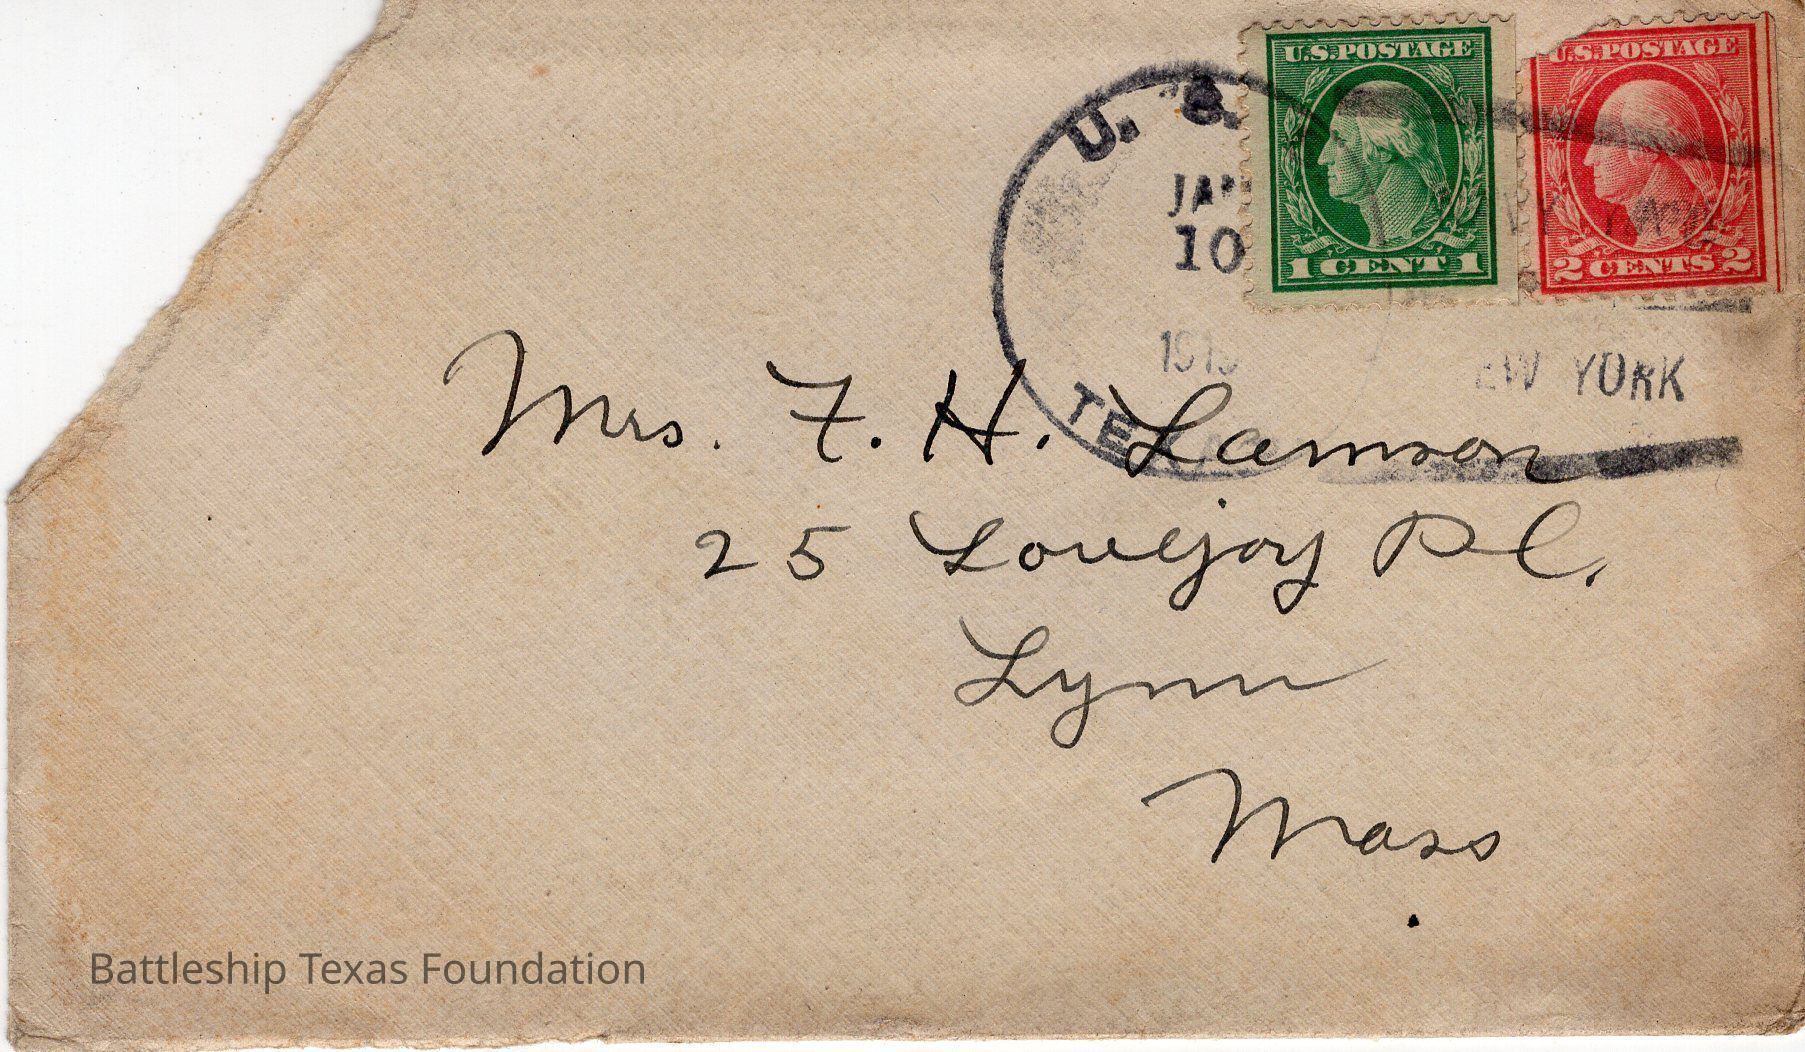 U.S.POSTAGE
1 CENT 1
U.S.POSTAGE
2 CENTS 2
U. S.
JAN
10
TEXAS
YORK
Mrs. F. H. Lamson
25 Lovejoy Pl.
Lynn
Mass
Battleship Texas Foundation